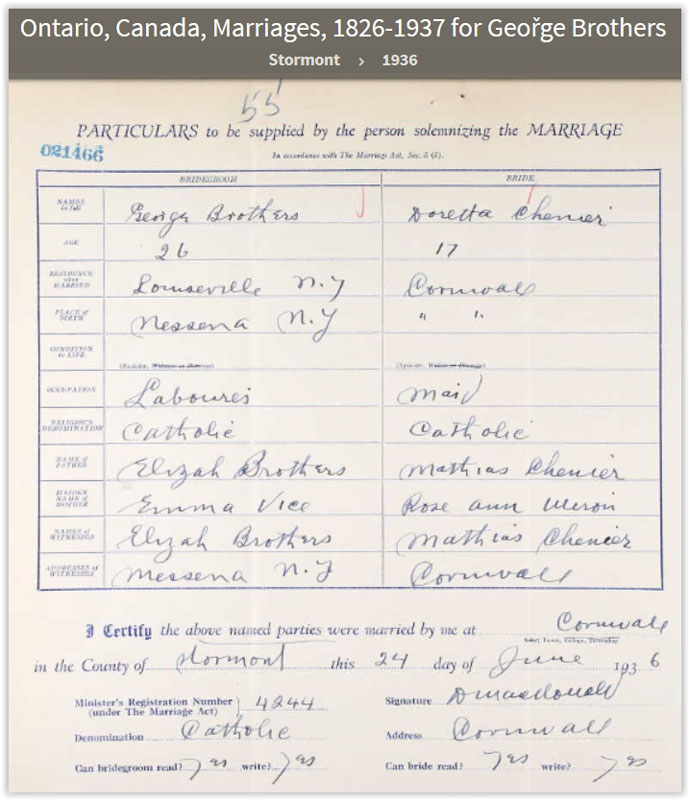 Ontario, Canada, Marriages, 1826-1937 for George Brothers
Stormont › 1936
55
PARTICULARS to be supplied by the person solemnizing the MARRIAGE
021466
In accordance with The Marriage Act, Sec. 5 (5).
BRIDEGROOM BRIDE
NAMES in full George Brothers Doretta Chenier
AGE 26 17
RESIDENCE when MARRIED Louiseville N.Y Cornwall
PLACE of BIRTH Messena N.Y " "
CONDITION in LIFE
(Bachelor, Widower or Divorced) (Spinster, Widow or Divorcee)
OCCUPATION Labourer Maid
RELIGIOUS DENOMINATION Catholic Catholic
NAME of FATHER Elizah Brothers Mathias Chenier
MAIDEN NAME of MOTHER Emma Vice Rose ann
NAMES of WITNESSES Elizah Brothers Mathias Chenier
ADDRESSES of WITNESSES Messena N.Y Cornwall
I Certify the above named parties were married by me at Cornwall
in the County of Stormont this 24 day of June 1936
Minister's Registration Number (under The Marriage Act) 4244 Signature D Macdonald
Denomination Catholic Address Cornwall
Can bridegroom read? yes write? yes Can bride read? yes write? yes